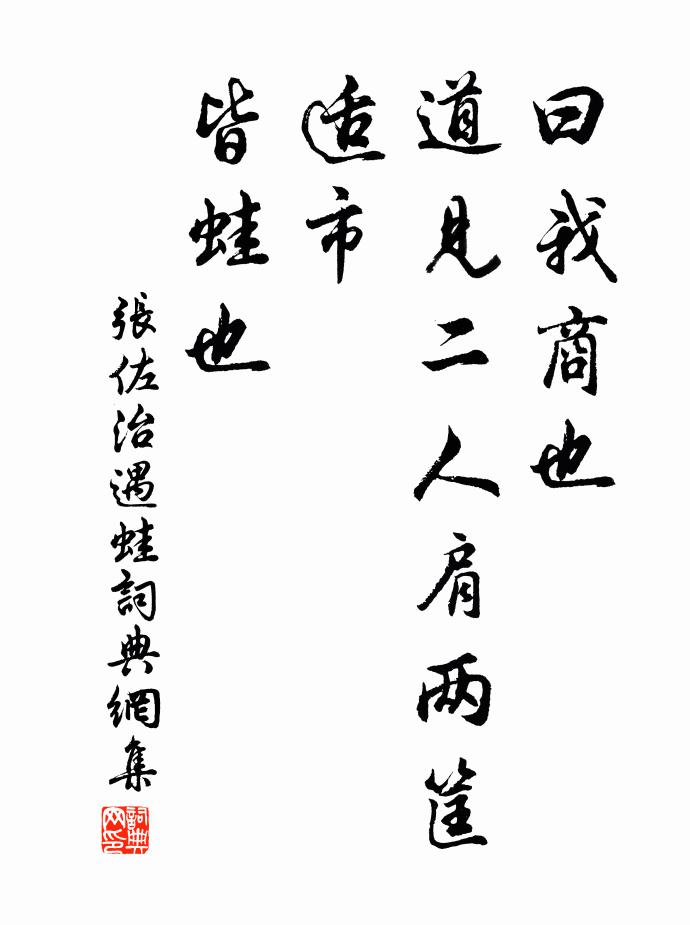 曰我商也
道見二人肩两筐
适市
皆蛙也
張佐治遇蛙詞典網集
詞典
网印